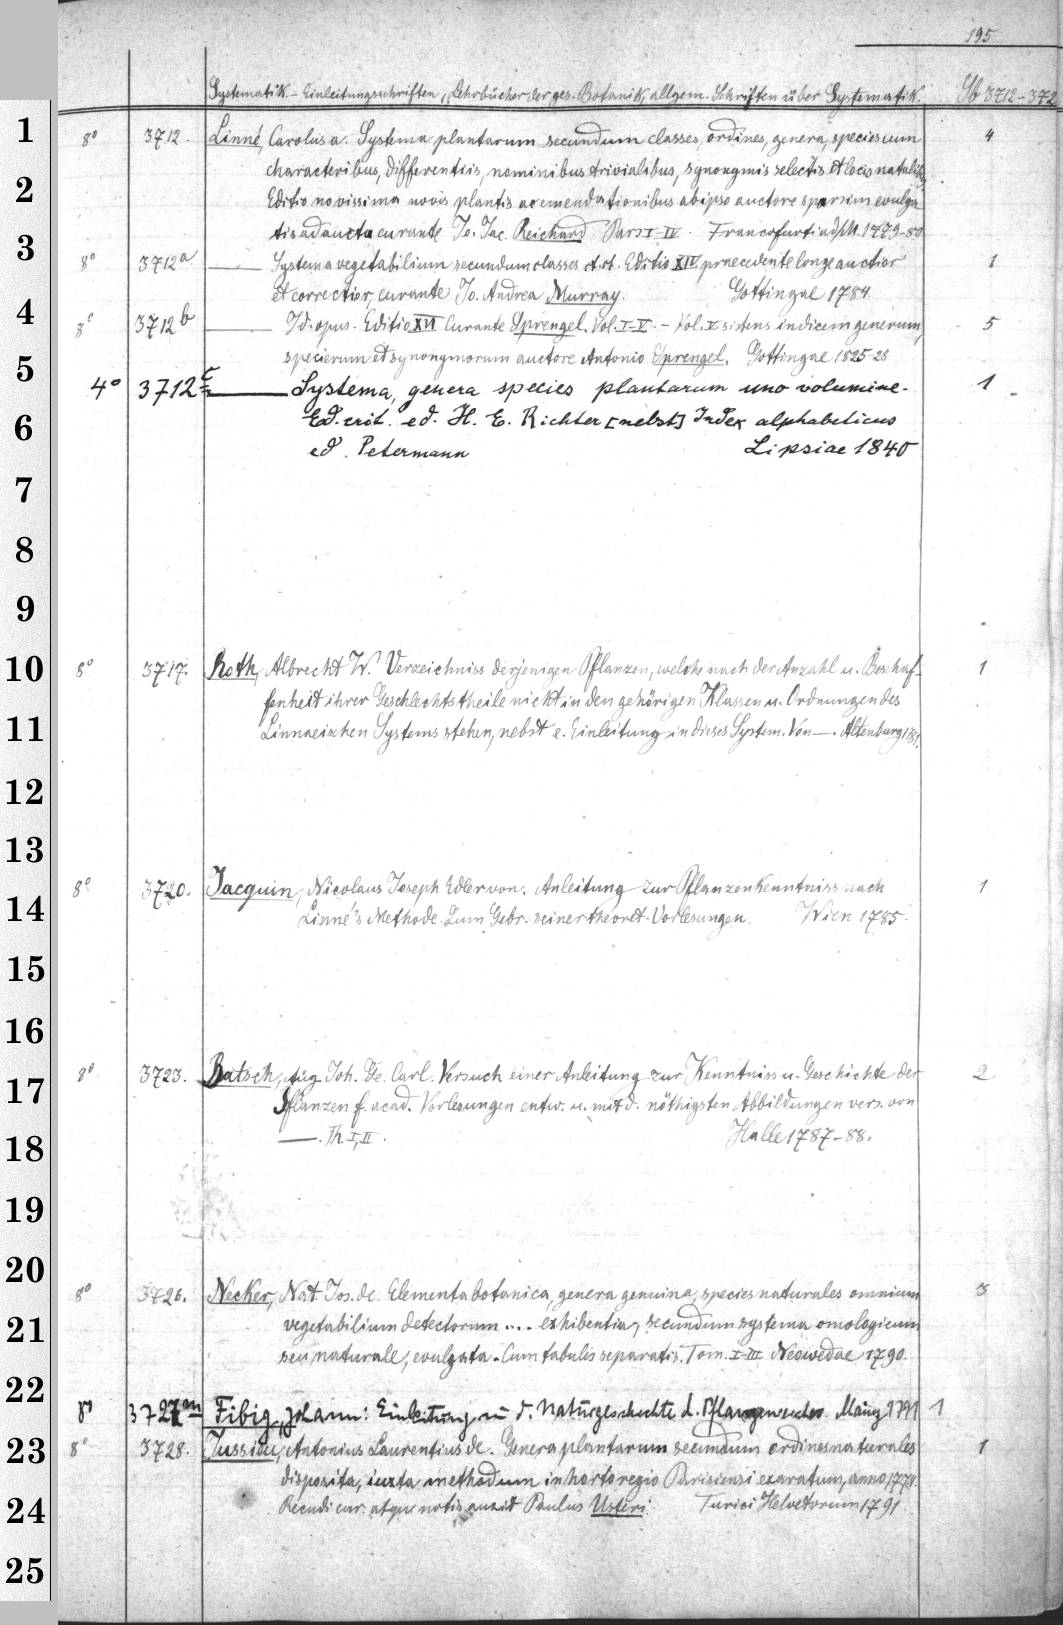 195
Systematik - Einleitungsschriften, Lehrbücher der ges. Botanik, allgem. Schriften über Systematik. Sb 3712-372
1
8° 3712. Linné, Carolus a. Systema plantarum secundum classes, ordines, genera, species cum 4
characteribus, differentiis, nominibus trivialibus, synonymis selectis et locis natalibus
2
Editio novissima novis plantis ac emendationibus ab ipso auctore sparsim evulga
3
tis adaucta curante Jo. Jac. Reichard Pars I-IV. Francofurti ad/M. 1779-80
8° 3712a —— Systema vegetabilium secundum classes etc. Editio XIV praecedente longe auctior 1
et correctior, curante Jo. Andrea Murray. Gottingae 1784.
4
8° 3712b —— Id. opus. Editio XVI Curante Sprengel. Vol. I-V. - Vol. V sistens indicem generum, 5
specierum et synonymorum auctore Antonio Sprengel. Gottingae 1825-28
5
4° 3712c —— Systema, genera species plantarum uno volumine. 1
6
Ed. crit. ed. H. E. Richter [nebst] Index alphabeticus
ed. Petermann Lipsiae 1840
7
8
9
10
8° 3717. Roth, Albrecht W. Verzeichniss derjenigen Pflanzen, welche nach der Anzahl u. Beschaf- 1
fenheit ihrer Geschlechtstheile nicht in den gehörigen Klassen u. Ordnungen des
11
Linnaeischen Systems stehen, nebst e. Einleitung in dieses System. Von —. Altenburg 1781.
12
13
8° 3720. Jacquin, Nicolaus Joseph Edler von. Anleitung zur Pflanzenkenntniss nach 1
14
Linné's Methode. Zum Gebr. seiner theoret. Vorlesungen. Wien 1785.
15
16
8° 3723. Batsch, Aug. Joh. Ge. Carl. Versuch einer Anleitung zur Kenntniss u. Geschichte der 2
17
Pflanzen f. acad. Vorlesungen entw. u. mit d. nöthigsten Abbildungen vers. von
18
——. Th. I, II. Halle 1787-88.
19
20
8° 3726. Necker, Nat. Jos. de. Elementa botanica, genera genuina, species naturales omnium 3
21
vegetabilium detectorum .... exhibentia, secundum systema omologicum
seu naturale, evulgata. Cum tabulis separatis. Tom. I-III Neowedae 1790.
22
8° 3727m Fibig, Johann: Einleitung in d. Naturgeschichte d. Pflanzenreiches. Mainz 1791 1
23
8° 3728. Jussieu, Antonius Laurentius de. Genera plantarum secundum ordines naturales 1
disposita, iuxta methodum in horto regio Parisiensi exaratum, anno 1774.
24
Recudi cur. atque notis auxit Paulus Usteri. Turici Helvetorum 1791
25